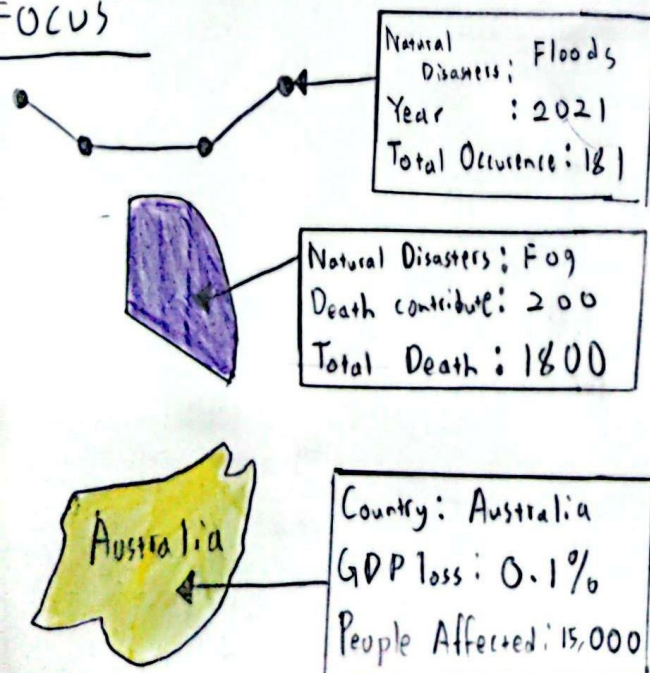 FOCUS
Natural
Disasters: Floods
Year : 2021
Total Occurence: 181
Natural Disasters: Fog
Death contribute: 200
Total Death: 1800
Australia
Country: Australia
GDP loss: 0.1%
People Affected: 15,000